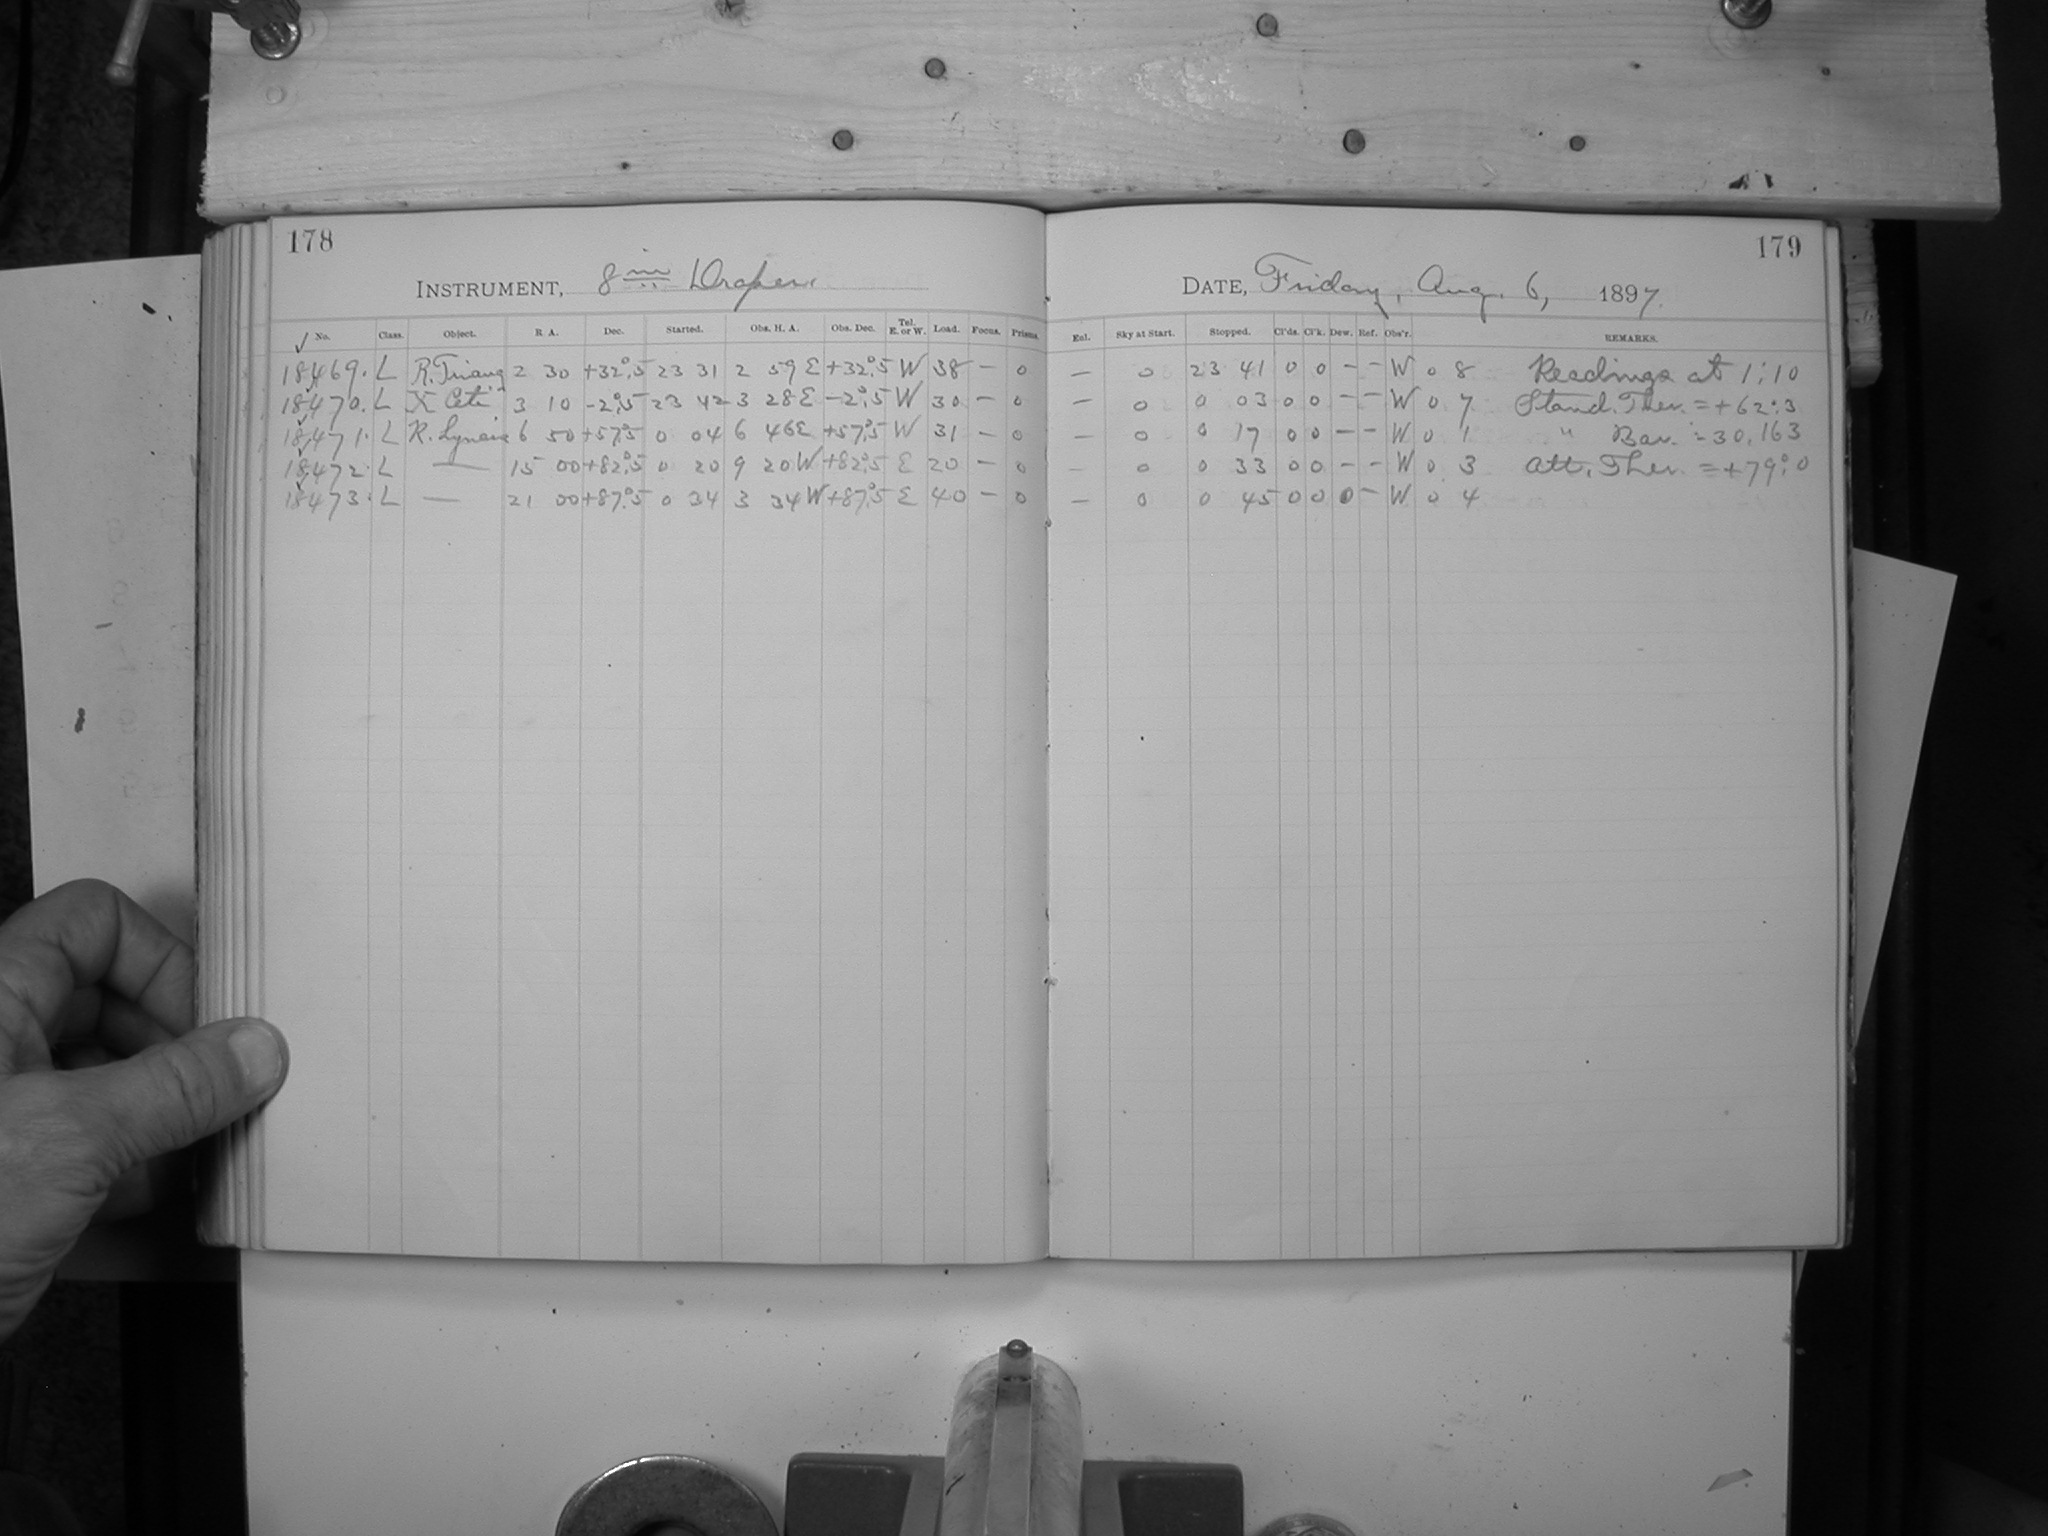 178
INSTRUMENT, 8 in Draper.
✓ No. Class. Object. R. A. Dec. Started. Obs. H. A. Obs. Dec. Tel. E. or W. Load. Focus. Prisms.
18469. L R. Triang 2 30 +32°.5 23 31 2 59 E +32°.5 W 38 — 0
18470. L X Ceti 3 10 -2°.5 23 42 3 28 E -2°.5 W 30 — 0
18471. L R. Lyncis 6 50 +57°.5 0 04 6 46 E +57°.5 W 31 — 0
18472. L — 15 00 +82°.5 0 20 9 20 W +82°.5 E 20 — 0
18473. L — 21 00 +87°.5 0 34 3 34 W +87°.5 E 40 — 0
179
DATE, Friday, Aug. 6, 1897.
Eol. Sky at Start. Stopped. Cl'ds. Cl'k. Dew. Ref. Obs'r. REMARKS.
— 0 23 41 0 0 — — W 0 8 Readings at 1:10
— 0 0 03 0 0 — — W 0 7 Stand. Ther. = +62°.3
— 0 0 17 0 0 — — W 0 1 " Bar. = 30.163
— 0 0 33 0 0 — — W 0 3 Att. Ther. = +79°.0
— 0 0 45 0 0 0 — W 0 4